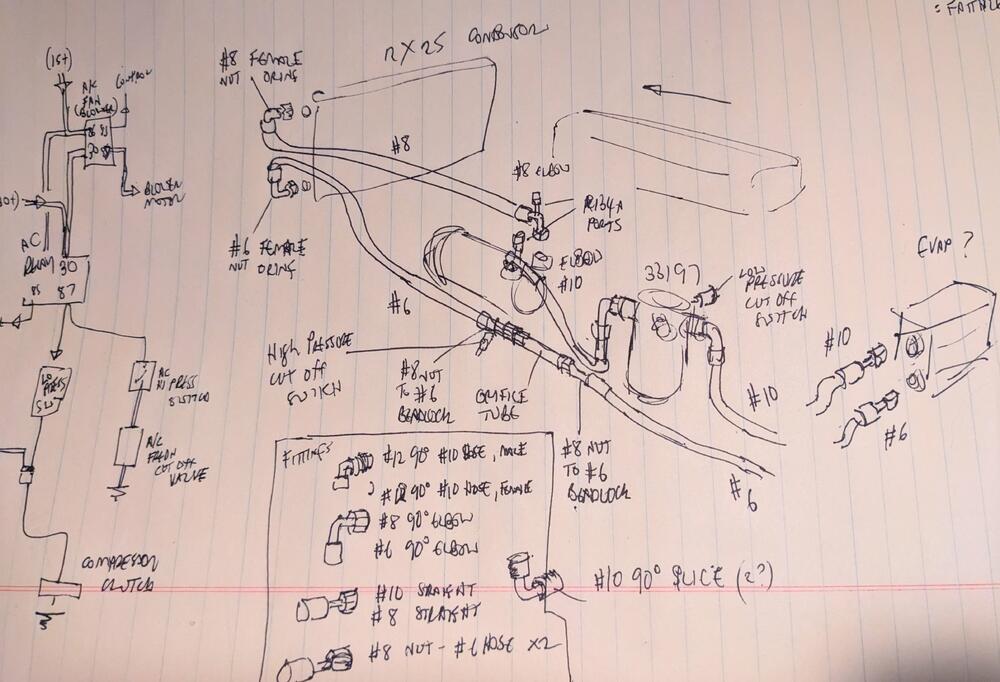 (1st)
A/C
FAN
(BLOWER)
CONTROL
30
BLOWER
MOTOR
AC
RELAY 30
85 87
LO
PRESS
SW
AC
HI PRESS
SWITCH
A/C
CUT OFF
VALVE
COMPRESSOR
CLUTCH
#8 FEMALE
NUT ORING
12 X 25 CONDENSOR
#8
#6 FEMALE
NUT ORING
#6
#8 ELBOW
R134A
PORTS
ELBOW
#10
33197
LOW
PRESSURE
CUT OFF
SWITCH
EVAP ?
#10
#6
#10
HIGH PRESSURE
CUT OFF
SWITCH
#8 NUT
TO #6
BEADLOCK
ORIFICE
TUBE
#8 NUT
TO #6
BEADLOCK
#6
FITTINGS
#12 90° #10 HOSE, MALE
2 #12 90° #10 HOSE, FEMALE
#8 90° ELBOW
#6 90° ELBOW
#10 STRAIGHT
#8 STRAIGHT
#8 NUT - #6 HOSE X2
#10 90° SLICE (2?)